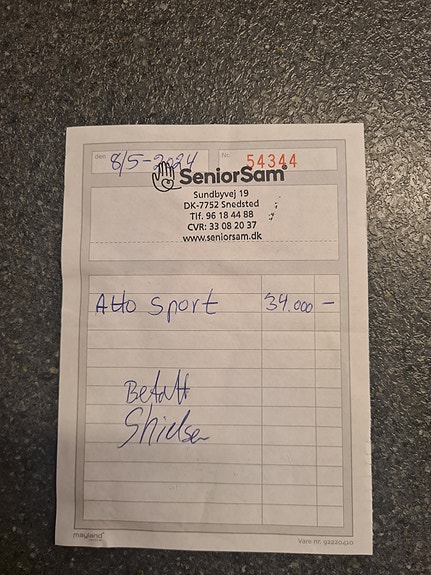 den 8/5-2024 Nr. 54344
SeniorSam
Sundbyvej 19
DK-7752 Snedsted
Tlf. 96 18 44 88
CVR: 33 08 20 37
www.seniorsam.dk
Atto Sport 34.000 -
Betalt
mayland
Vare nr. 92220420